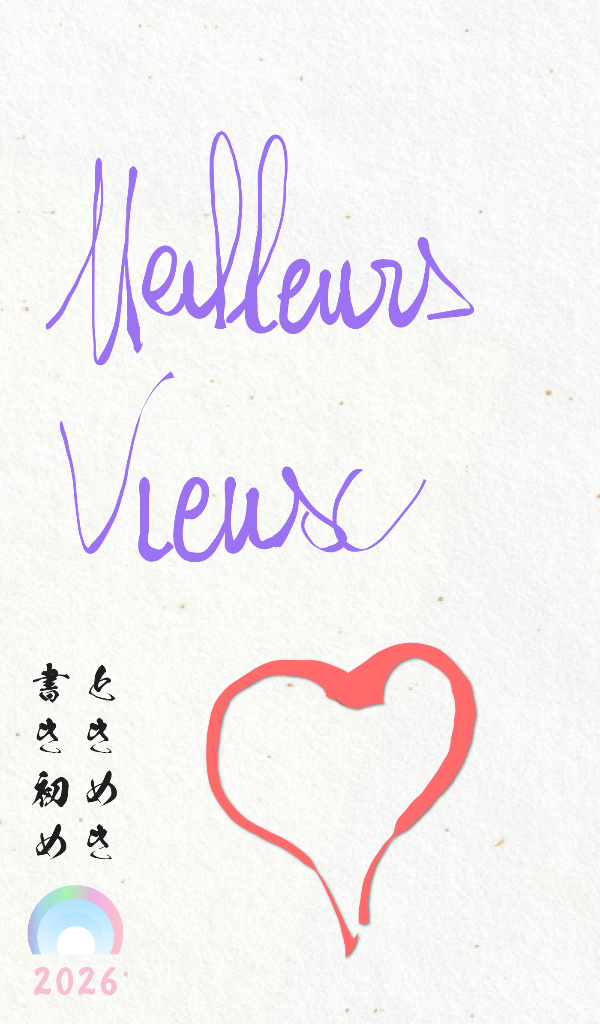 Meilleurs
Vieux
ときめき
書き初め
2026